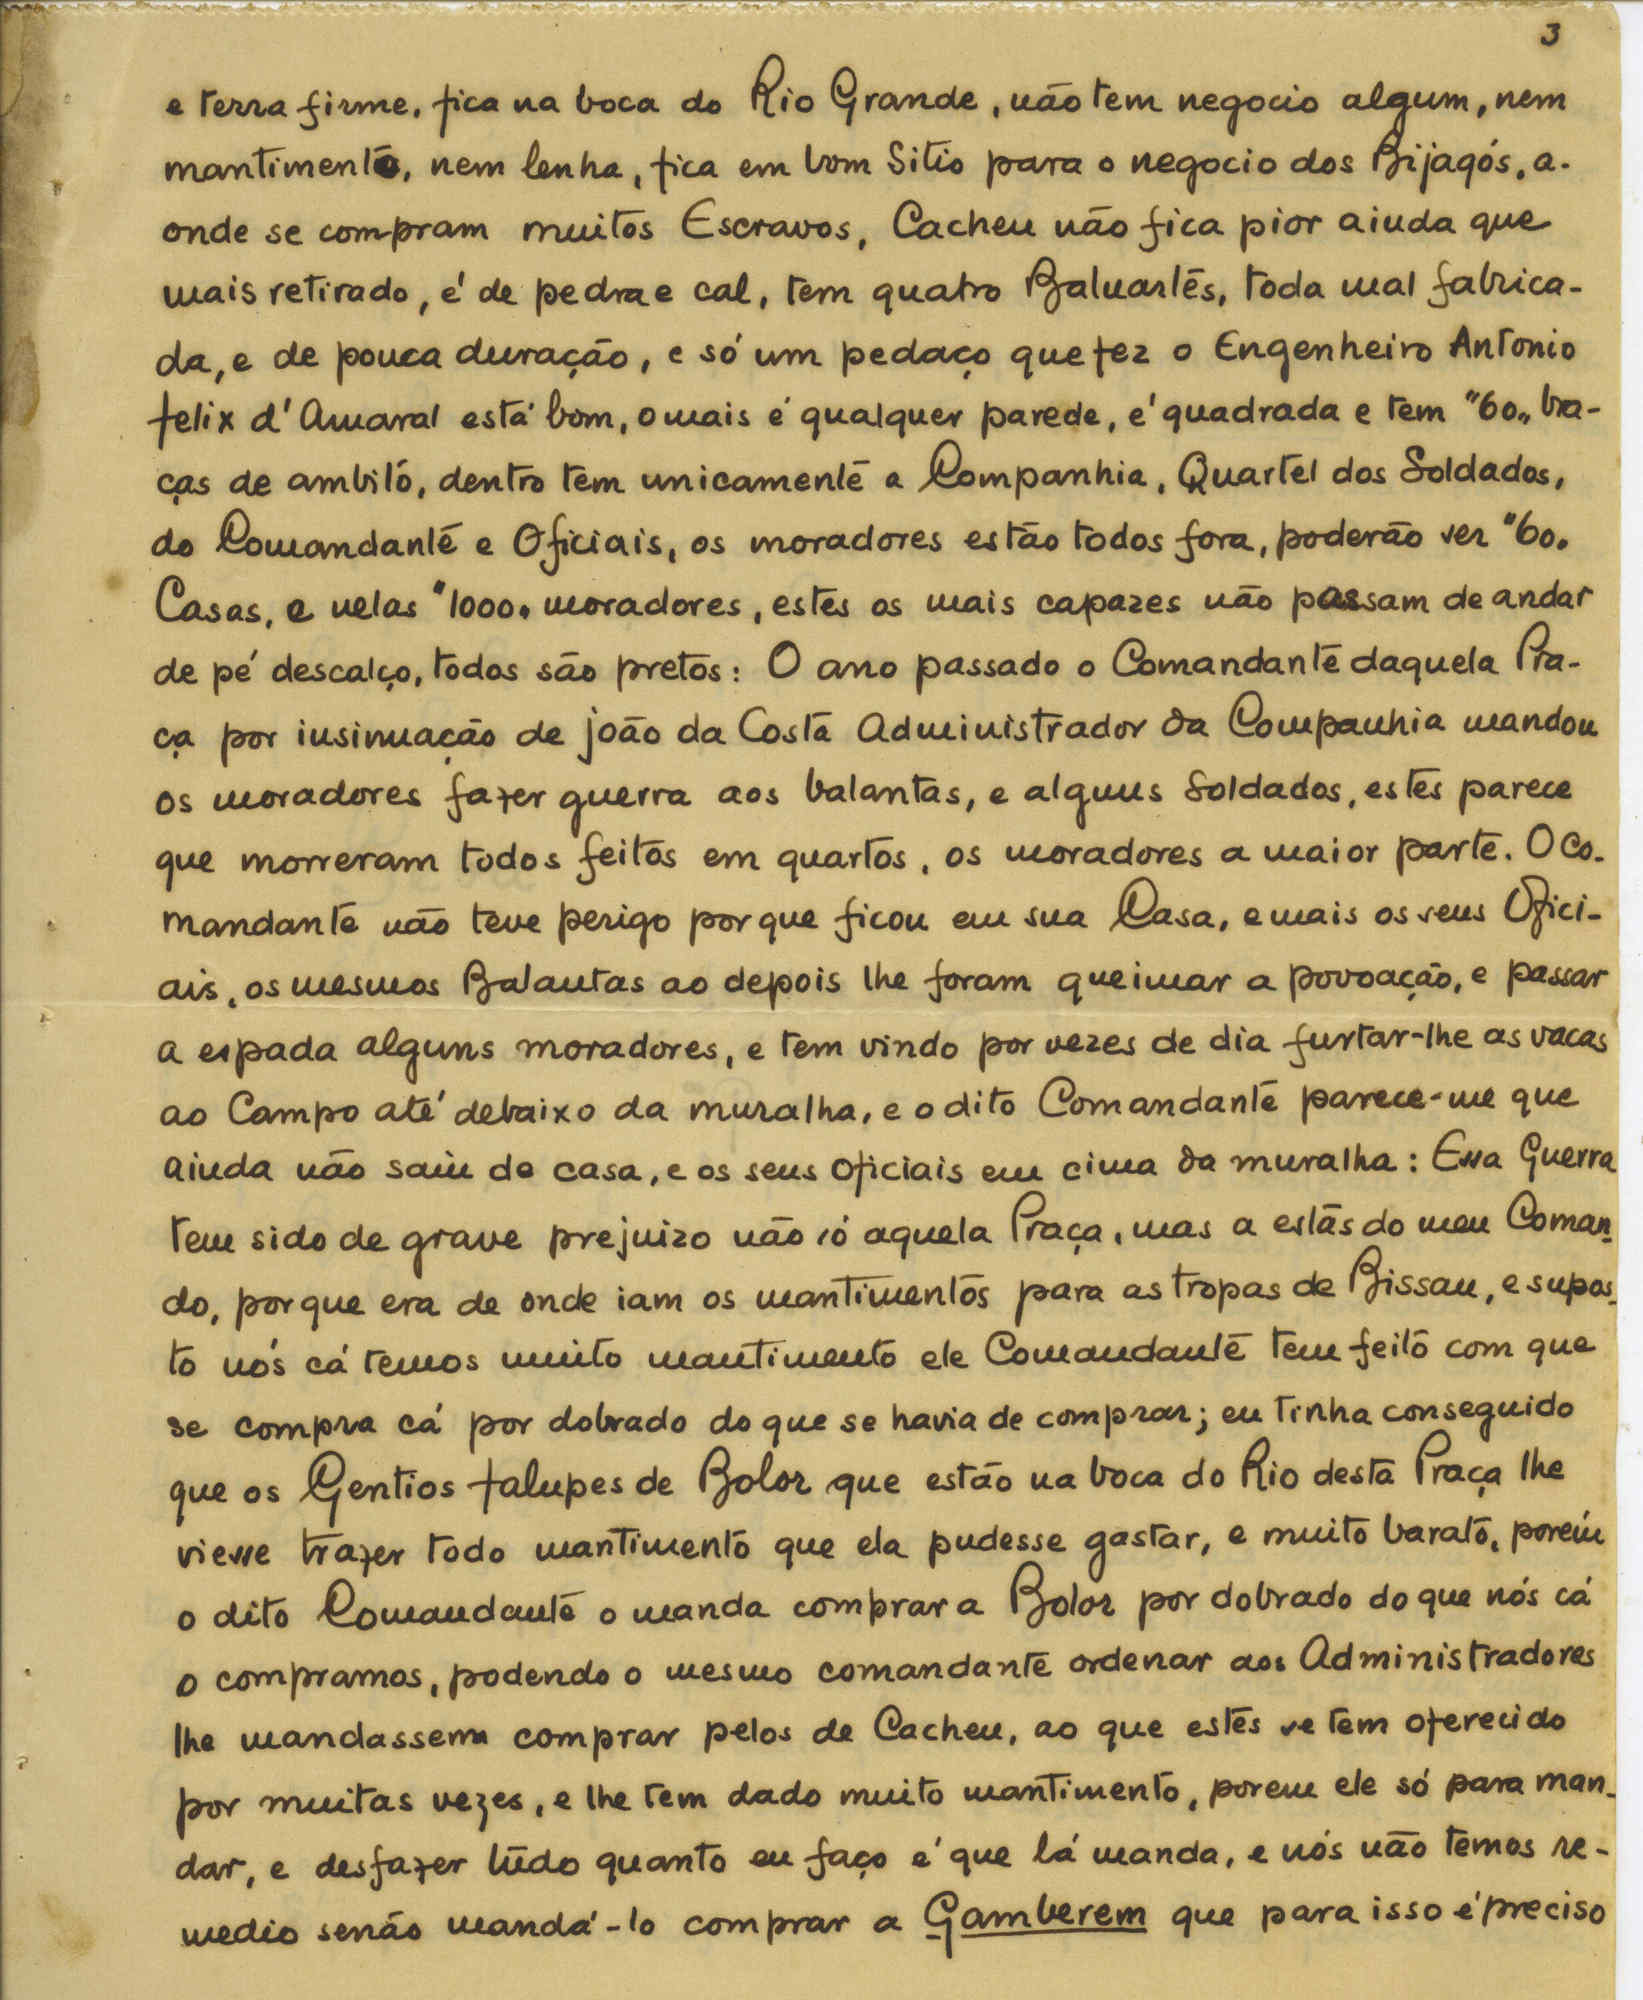 3
e terra firme, fica na boca do Rio Grande, não tem negocio algum, nem
mantimento, nem lenha, fica em bom Sitio para o negocio dos Bijagós, a-
onde se compram muitos Escravos, Cacheu não fica pior ainda que
mais retirado, é de pedra e cal, tem quatro Baluartes, toda mal fabrica-
da, e de pouca duração, e só um pedaço que fez o Engenheiro Antonio
felix d'Amaral está bom, o mais é qualquer parede, é quadrada e tem "60" bra-
ças de ambito, dentro tem unicamente a Companhia, Quartel dos Soldados,
do Comandante e Oficiais, os moradores estão todos fora, poderão ser "60.
Casas, e nelas "1000. moradores, estes os mais capazes não passam de andar
de pé descalço, todos são pretos: O ano passado o Comandante daquela Pra-
ça por insinuação de joão da Costa Administrador da Companhia mandou
os moradores fazer guerra aos balantas, e alguns Soldados, estes parece
que morreram todos feitos em quartos, os moradores a maior parte. O Co-
mandante não teve perigo porque ficou em sua Casa, e mais os seus Ofici-
ais, os mesmos Balantas ao depois lhe foram queimar a povoação, e passar
a espada alguns moradores, e tem vindo por vezes de dia furtar-lhe as vacas
ao Campo até debaixo da muralha, e o dito Comandante parece-me que
ainda não saiu de casa, e os seus oficiais em cima da muralha: Essa Guerra
tem sido de grave prejuizo não só aquela Praça, mas a estas do meu Coman-
do, porque era de onde iam os mantimentos para as tropas de Bissau, e supos-
to nós cá temos muito mantimento ele Comandante tem feito com que
se compra cá por dobrado do que se havia de comprar; eu tinha conseguido
que os Gentios falupes de Bolor que estão na boca do Rio desta Praça lhe
viesse trazer todo mantimento que ela pudesse gastar, e muito barato, porém
o dito Comandante o manda comprar a Bolor por dobrado do que nós cá
o compramos, podendo o mesmo comandante ordenar aos Administradores
lhe mandassem comprar pelos de Cacheu, ao que estes se tem oferecido
por muitas vezes, e lhe tem dado muito mantimento, porem ele só para man-
dar, e desfazer tudo quanto eu faço é que lá manda, e nós não temos re-
medio senão mandá-lo comprar a Gamberem que para isso é preciso